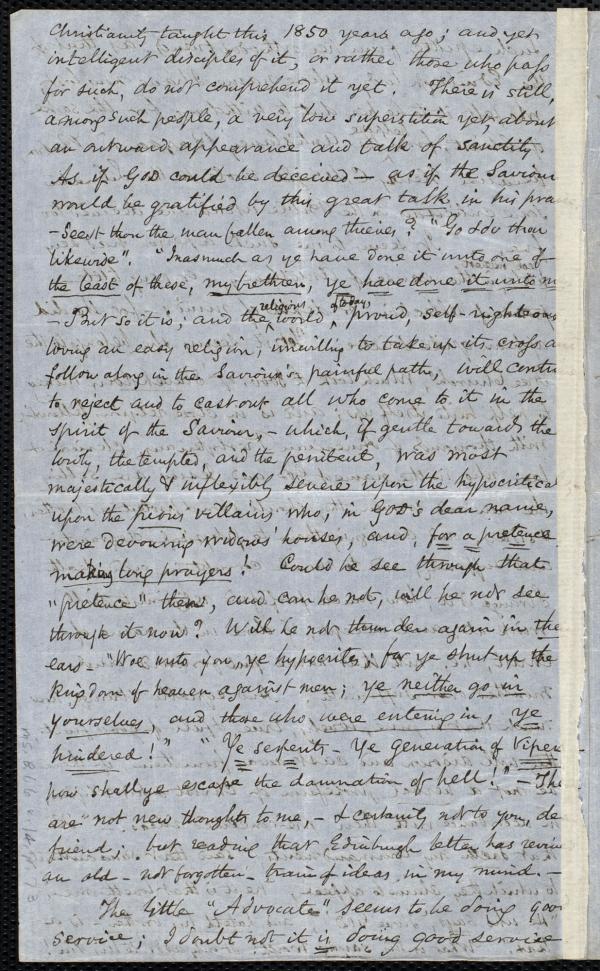 Christianity taught this 1850 years ago; and yet
intelligent disciples of it, or rather those who pass
for such, do not comprehend it yet. There is still,
among such people, a very low superstition yet, about
an outward appearance and talk of sanctity.
As if God could be deceived – as if the Saviour
would be gratified by this great talk in his pra
– Seest thou the man fallen among thieves? "Go & do thou
likewise". "Inasmuch as ye have done it unto one of
the least of these, my brethren, ye have done it unto m
– But so it is; and the religious world, of to day, proud, self-righteous
loving an easy religion, unwilling to take up its cross a
follow along in the Saviour's painful path, will contin
to reject and to cast out all who come to it in the
spirit of the Saviour, – which, if gentle towards the
lowly, the tempted, and the penitent, was most
majestically & inflexibly severe upon the hypocritical
upon the pious villains who, in God's dear name,
were devouring widows' houses, and, for a pretence
making long prayers! Could he see through that
"pretence" then, and can he not, will he not see
through it now? Will he not thunder again in the
ears – "Woe unto you, ye hypocrites; for ye shut up the
kingdom of heaven against men; ye neither go in
yourselves, and those who were entering in, ye
hindered!" "Ye serpents – Ye generation of vipers
how shall ye escape the damnation of hell!" – The
are not new thoughts to me, – & certainly not to you, de
friend; but reading that Edinburgh letter has reviv
an old – not forgotten – train of ideas in my mind. –
The little "Advocate" seems to be doing goo
service; I doubt not it is doing good service